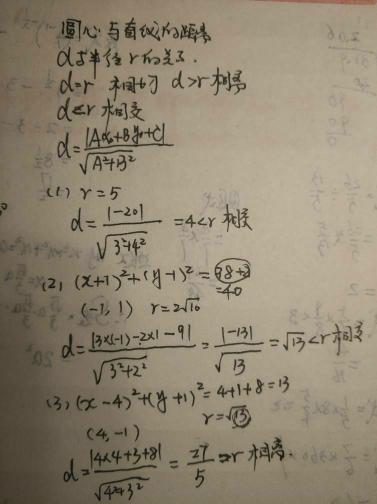 圆心与直线的距离
d与半径r的关系.
d=r 相切 d>r相离
d<r 相交
d=|Ax₀+By₀+C|/√A²+B²
(1) r=5
d=|-20|/√3²+4²=4<r 相交
(2) (x+1)²+(y-1)²=38+2
=40
(-1,1) r=2√10
d=|3×(-1)-2×1-9|/√3²+2²=|-13|/√13=√13<r相交
(3) (x-4)²+(y+1)²=4+1+8=13
r=√13
(4,-1)
d=|4×4+3+8|/√4²+3²=27/5=>r 相离.